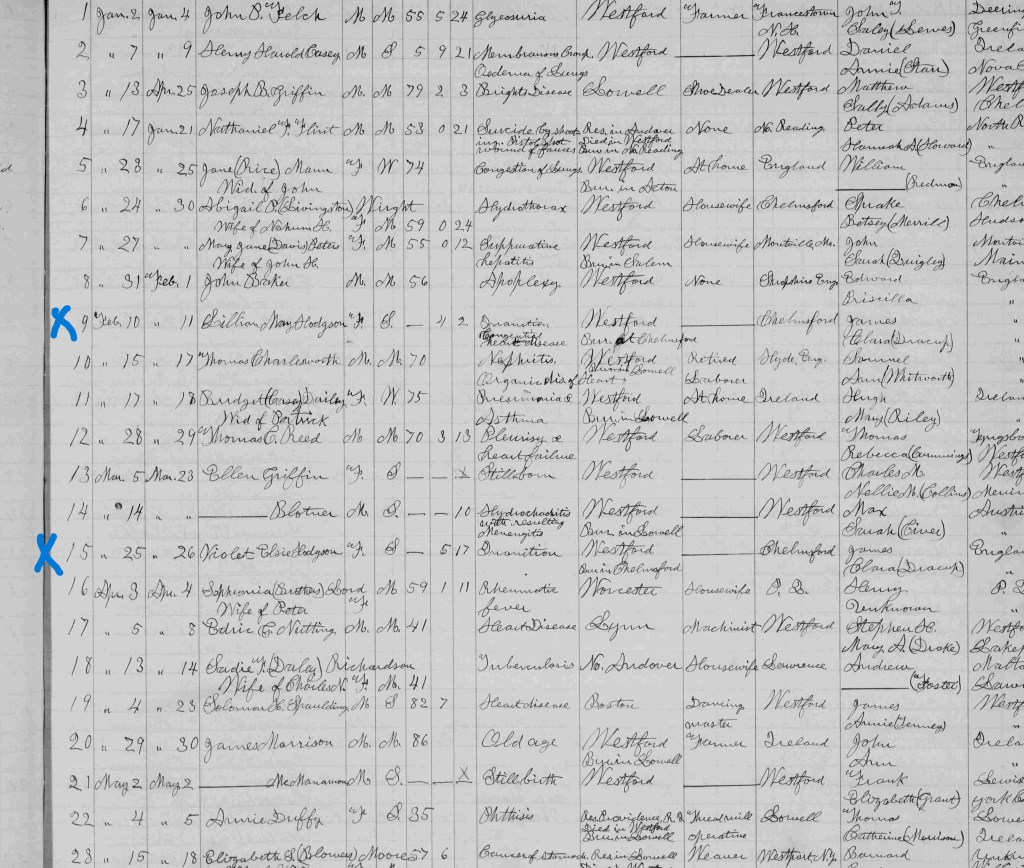 1 Jan. 2 Jan. 4 John P. Felch M M 55 5 24 Glycosuria Westford Farmer Francestown John T.
N.H. Sally (Dewes) Greenfi
2 " 7 " 9 Henry Harold Casey M. S. 5 9 21 Membranous Croup Westford — Westford Daniel Irela
Oedema of Lungs Annie (Starr) Nova
3 " 13 Apr. 25 Joseph B. Griffin M. M 79 2 3 Brights Disease Lowell Shoe Dealer Westford Matthew Westf
Sally (Adams) Chel
4 " 17 Jan. 21 Nathaniel F. Flint M M 53 0 21 Suicide by shoot Res. in Andover None No. Reading Peter North R
ing. Pistol shot Died in Westford
wound of fauces Bur. in No. Reading Hannah A (Howard) "
5 " 23 " 25 Jane (Rice) Mann F W. 74 Congestion of Lungs Westford At home England William Englan
Wid. of John Bur. in Acton — (Redman) "
6 " 24 " 30 Abigail P. (Livingston) Wright Hydrothorax Westford Housewife Chelmsford Chel
Wife of Nahum H. F. M 59 0 24 Betsey (Merrill) Hudso
7 " 27 " " Mary Jane (Davis) Peters F. M 55 0 12 Suppurative Westford Housewife Montville, Me. John Montvi
Wife of John H. hepatitis Bur in Salem Sarah (Quigley) Main
8 " 31 Feb. 1 John Baker M. M 56 Apoplexy Westford None Shropshire Eng. Edward Englan
Priscilla "
X 9 Feb. 10 " 11 Lillian May Hodgson F. S. — 4 2 Inanition Westford — Chelmsford James "
Congenital
heart disease Bur. at Chelmsford Clara (Dracup) "
10 " 15 " 17 Thomas Charlesworth M. M. 70 Nephritis Westford Retired Hyde, Eng. Samuel "
Organic dis. of Heart Bur in Lowell Laborer Ann (Whitworth) "
11 " 17 " 18 Bridget (Casey) Dailey F. W. 75 Pneumonia & Westford At home Ireland Hugh Irelan
Wid of Patrick Asthma Bur. in Lowell Mary (Riley) "
12 " 28 " 29 Thomas C. Reed M M 70 3 13 Pleurisy & Westford Laborer Westford Thomas Tyngsbo
heart failure Rebecca (Cummings) Westf
13 Mar. 5 Mar. 23 Ellen Griffin F. S — — X Stillborn Westford — Westford Charles M. West
Nellie M. (Collins)
14 " 14 " " — Blotner M S. — — 10 Westford — Westford Max Austri
with resulting
Meningitis Bur. in Lowell Sarah "
X 15 " 25 " 26 Violet Elsie Hodgson F. S — 5 17 Inanition Westford — Chelmsford James Englan
Bur in Chelmsford Clara (Dracup) "
16 Apr. 3 Apr. 4 Sophronia Lord F M 59 1 11 Rheumatic Worcester Housewife P. Q. Henry P. Q
Wife of Peter fever Unknown "
17 " 5 " 8 Edric C. Nutting M. M. 41 Heart Disease Lynn Machinist Westford Stephen H. Westfo
Mary A (Drake)
18 " 13 " 14 Sadie F. (Daley) Richardson Tuberculosis No. Andover Housewife Lawrence Andrew
Wife of Charles N. F. M. 41 — (Foster) Lawr
19 " 4 " 23 Solomon H. Spaulding M S 82 7 Heart disease Boston Dancing Westford James Westf
master Annie (Tenney) "
20 " 29 " 30 James Morrison M. M. 86 Old age Westford Farmer Ireland John Irela
Bur in Lowell Ann "
21 May 2 May 2 — McManamon M S. — — X Stillbirth Westford — Westford Frank Lewis
Elizabeth (Grant) York C
22 " 4 " 5 Annie Duffy F S. 35 Phthisis Res. Providence, R.I. Thread mill Lowell Thomas Lowe
Died in Westford
Bur in Lowell operative Catherine (Morrison) Irela
23 " 15 " 18 Elizabeth S. (Blowey) Moore 57 6 Cancer of stomach Res. in Lowell Weaver Westport N.Y. Barnard